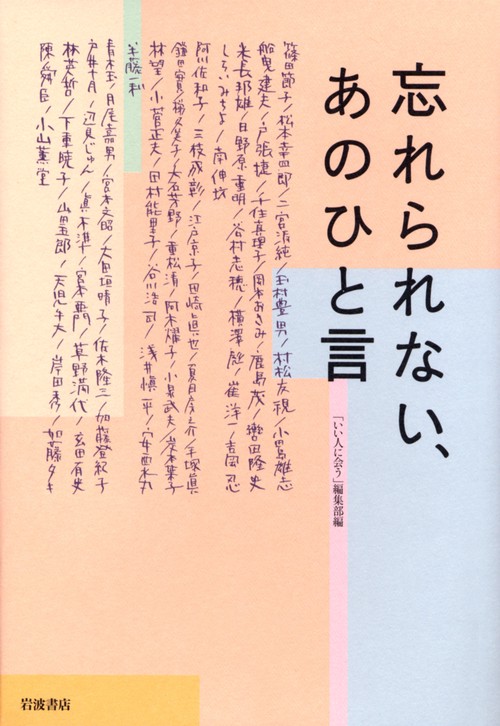 忘れられない、
あのひと言
「いい人に会う」編集部編
篠田節子/松本幸四郎/二宮清純/玉村豊男/村松友視/小田島雄志
船曳建夫/戸張捷/千住真理子/鹿島茂/
米長邦雄/日野原重明/谷村志穂/横澤彪/崔洋一/吉岡忍
しらいみちよ/南伸坊
阿川佐和子/三枝成彰/江戸京子/田崎真也/夏目房之介/手塚眞
鎌田實/大石芳野/重松清/阿木燿子/小泉武夫/岸本葉子
林望/小菅正夫/田村能里子/谷川浩司/浅井愼平/安西水丸
半藤一利
青木玉/月尾嘉男/宮本文昭/大田垣晴子/佐木隆三/加藤登紀子
戸井十月/辺見じゅん/眞木準/宮本亜門/草野満代/玄田有史
林英哲/下重暁子/山田五郎/天児牛大/岸田秀/加藤タキ
陳舜臣/小山薫堂
岩波書店